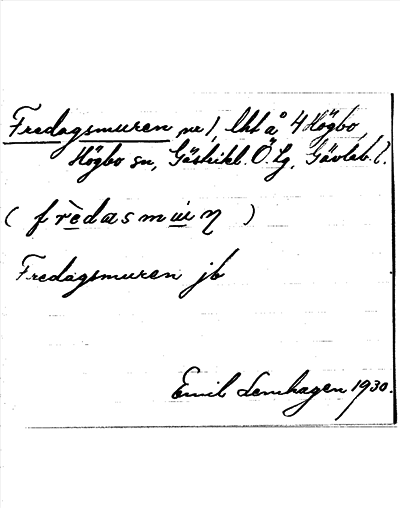 Fredagsmuren, nr 1, lht å 4 Högbo,
Högbo sn, Gästrikl. Ö. Lg, Gävleb. l.
(frèdasmuꞟ)
Fredagsmuren jb
Emil Lenhagen 1930.